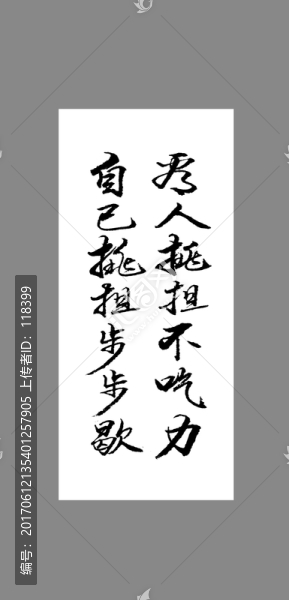 为人挑担不吃力
自己挑担步步歇
编号：20170612135401257905 上传者ID：118399